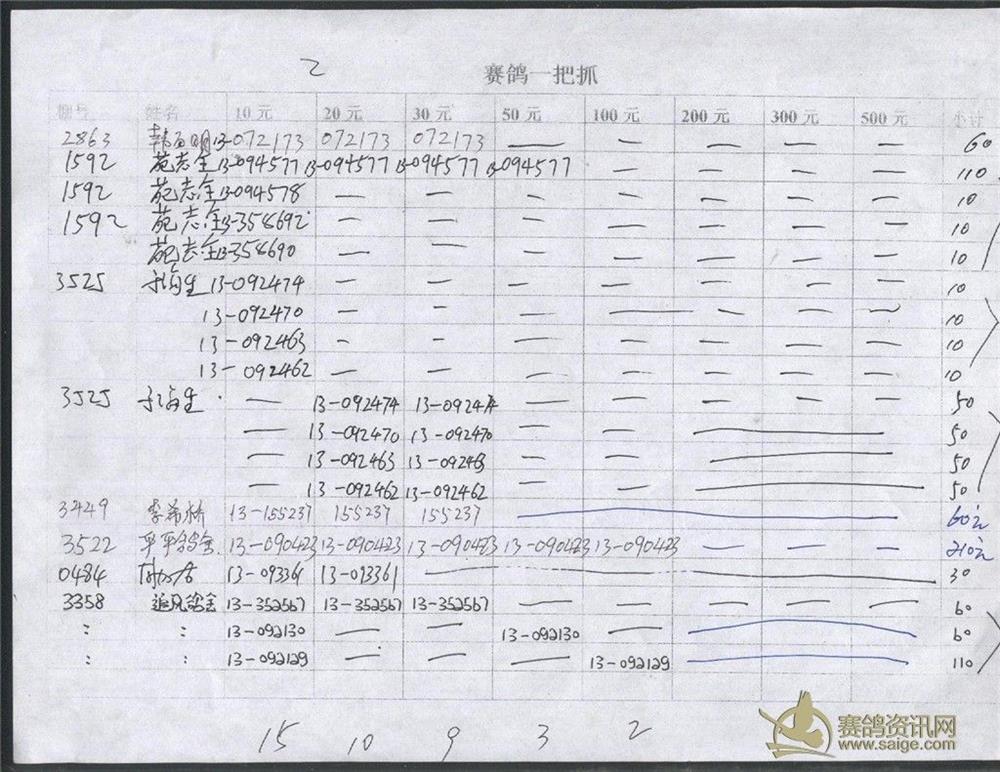 2
赛鸽一把抓
棚号 姓名 10元 20元 30元 50元 100元 200元 300元 500元 小计
2863 韩 明 13-072173 072173 072173 — — — — — 60
1592 苑志全 13-094577 13-094577 13-094577 13-094577 — — — — 110
1592 苑志全 13-094578 — — — — — — — 10
1592 苑志全 13-358692 — — — — — — — 10
苑志全 13-358690 — — — — — — — 10
3525 于海生 13-092474 — — — — — — — 10
13-092470 — — — — — — — 10
13-092463 — — — — — — — 10
13-092462 — — — — — — — 10
3525 于海生 — 13-092474 13-092474 — — — — — 50
— 13-092470 13-092470 — — — 50
— 13-092463 13-092463 — — — 50
— 13-092462 13-092462 — — — 50
3449 李希桥 13-155237 155237 155237 — 60元
3522 平平鸽舍 13-090423 13-090423 13-090423 13-090423 13-090423 — — — 210元
0484 13-093361 13-093361 — 30
3358 追风鸽舍 13-352567 13-352567 13-352567 — — — — — 60
: : 13-092130 — — 13-092130 — — 60
: : 13-092129 — — — 13-092129 — 110
15 10 9 3 2
赛鸽资讯网
www.saige.com